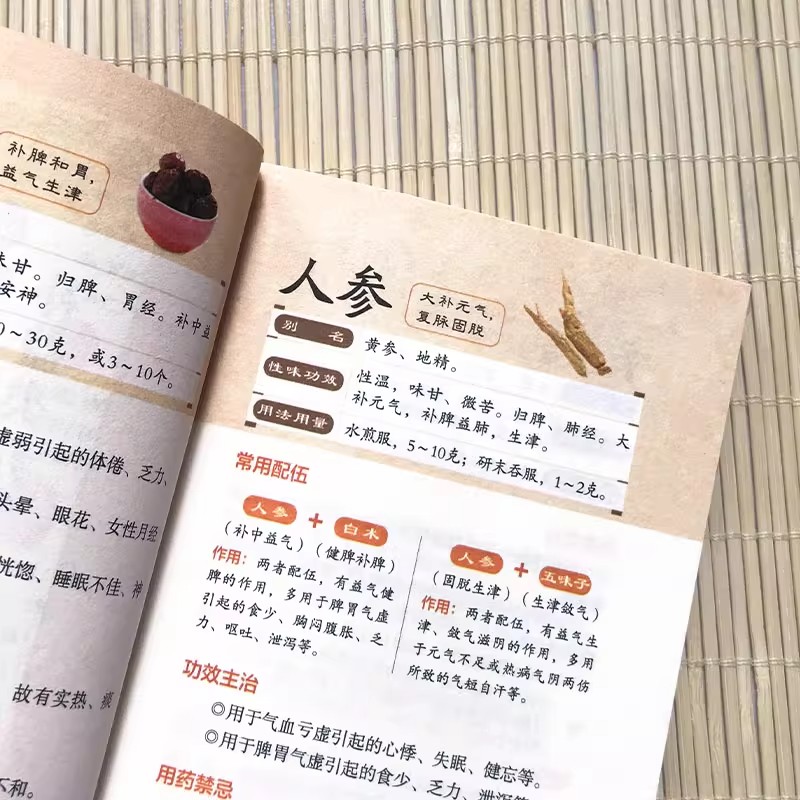 补脾和胃，
益气生津
味甘。归脾、胃经。补中益
安神。
0～30克，或3～10个。
虚弱引起的体倦、乏力、
头晕、眼花、女性月经
恍惚、睡眠不佳、神
故有实热、痰
不和。
人参
大补元气，
复脉固脱
别名 黄参、地精。
性味功效 性温，味甘、微苦。归脾、肺经。大
补元气，补脾益肺，生津。
用法用量 水煎服，5～10克；研末吞服，1～2克。
常用配伍
人参 + 白术
（补中益气）（健脾补脾）
作用：两者配伍，有益气健
脾的作用，多用于脾胃气虚
引起的食少、胸闷腹胀、乏
力、呕吐、泄泻等。
人参 + 五味子
（固脱生津）（生津敛气）
作用：两者配伍，有益气生
津、敛气滋阴的作用，多用
于元气不足或热病气阴两伤
所致的气短自汗等。
功效主治
◎用于气血亏虚引起的心悸、失眠、健忘等。
◎用于脾胃气虚引起的食少、乏力、泄泻等
用药禁忌